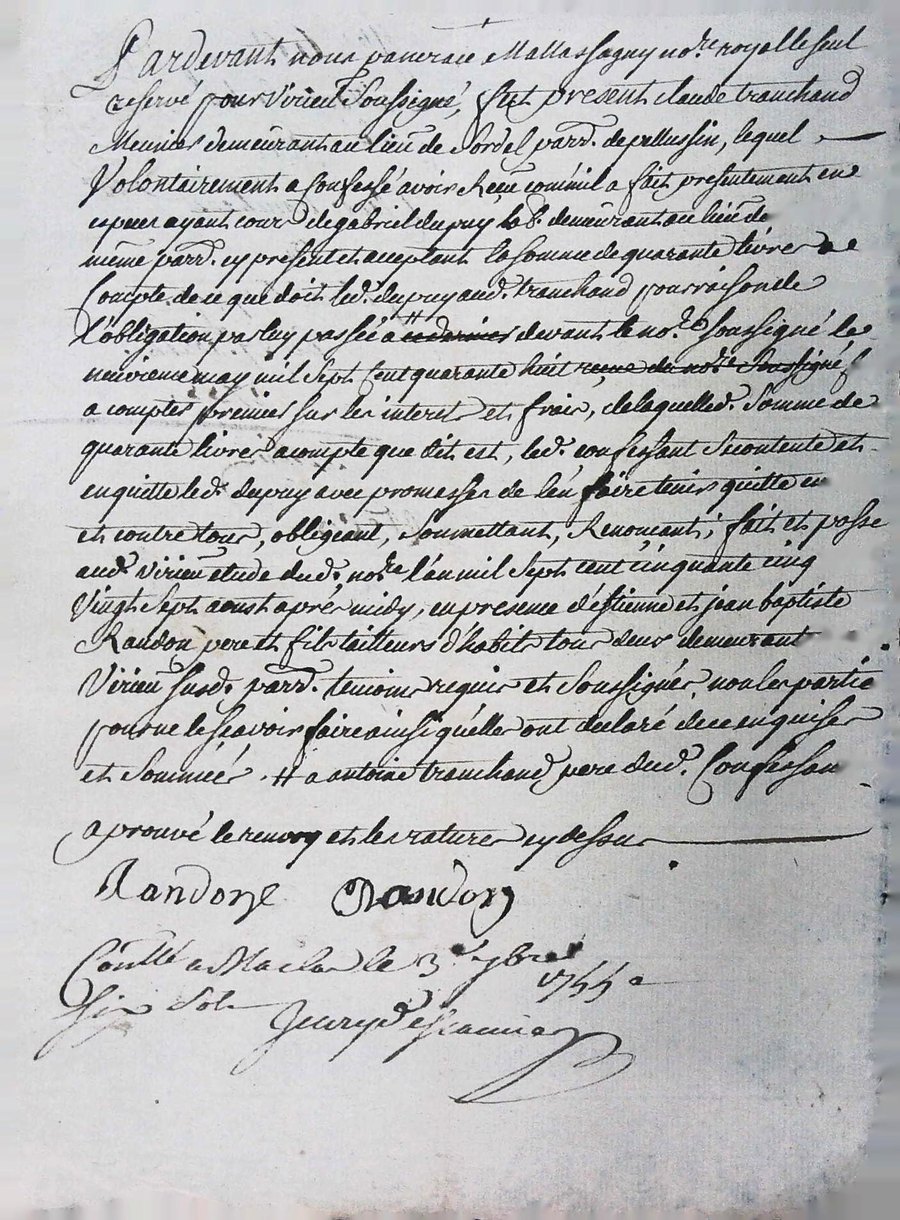 Pardevant nous pancrace Mallassagny no.re royal seul
reservé pour Virieu Soussigné, fut present claude tranchand
Meunier demeurant au lieu de Sordel parr. de pellussin, lequel
Volontairement a Confessé avoir Receu comme il a fait presentement en
espece ayant cour de gabriel dupuy lab.r demeurant au lieu de
même parr. cy present et acceptant la somme de quarante livres a
Compte de ce que doit led. dupuy aud. tranchand pour raison de
l'obligation par luy passée a # devant le no.re Soussigné le
neuvieme may mil Sept Cent quarante huit recue du no.re Soussigné
a compter premier sur les interets et frais, de laquelle d. Somme de
quarante livres acompte que dit est, led. confessant Se contente et
en quitte led. dupuy avec promesse de l'en faire tenir quitte en
et contre tous, obligeant, Soumettant, Renoncant, fait et passé
aud. virieu etude dud. no.re l'an mil Sept cent cinquante cinq
Vingt Sept aoust aprés midy, en presence d'estienne et jean baptiste
Randon pere et fils tailleurs d'habits tous deux demeurant
Virieu Susd. parr. temoins requis et Soussignés, non les partie
pour ne le scavoir faire ainsi qu'elles ont declaré de ce enquises
et Sommées. # a antoine tranchand pere dud. Confessan
aprouvé le renvoy et les ratures cy dessus
Randon Randon
Con.llé a Maclas le 3.e 7bre 1755
Six Sols